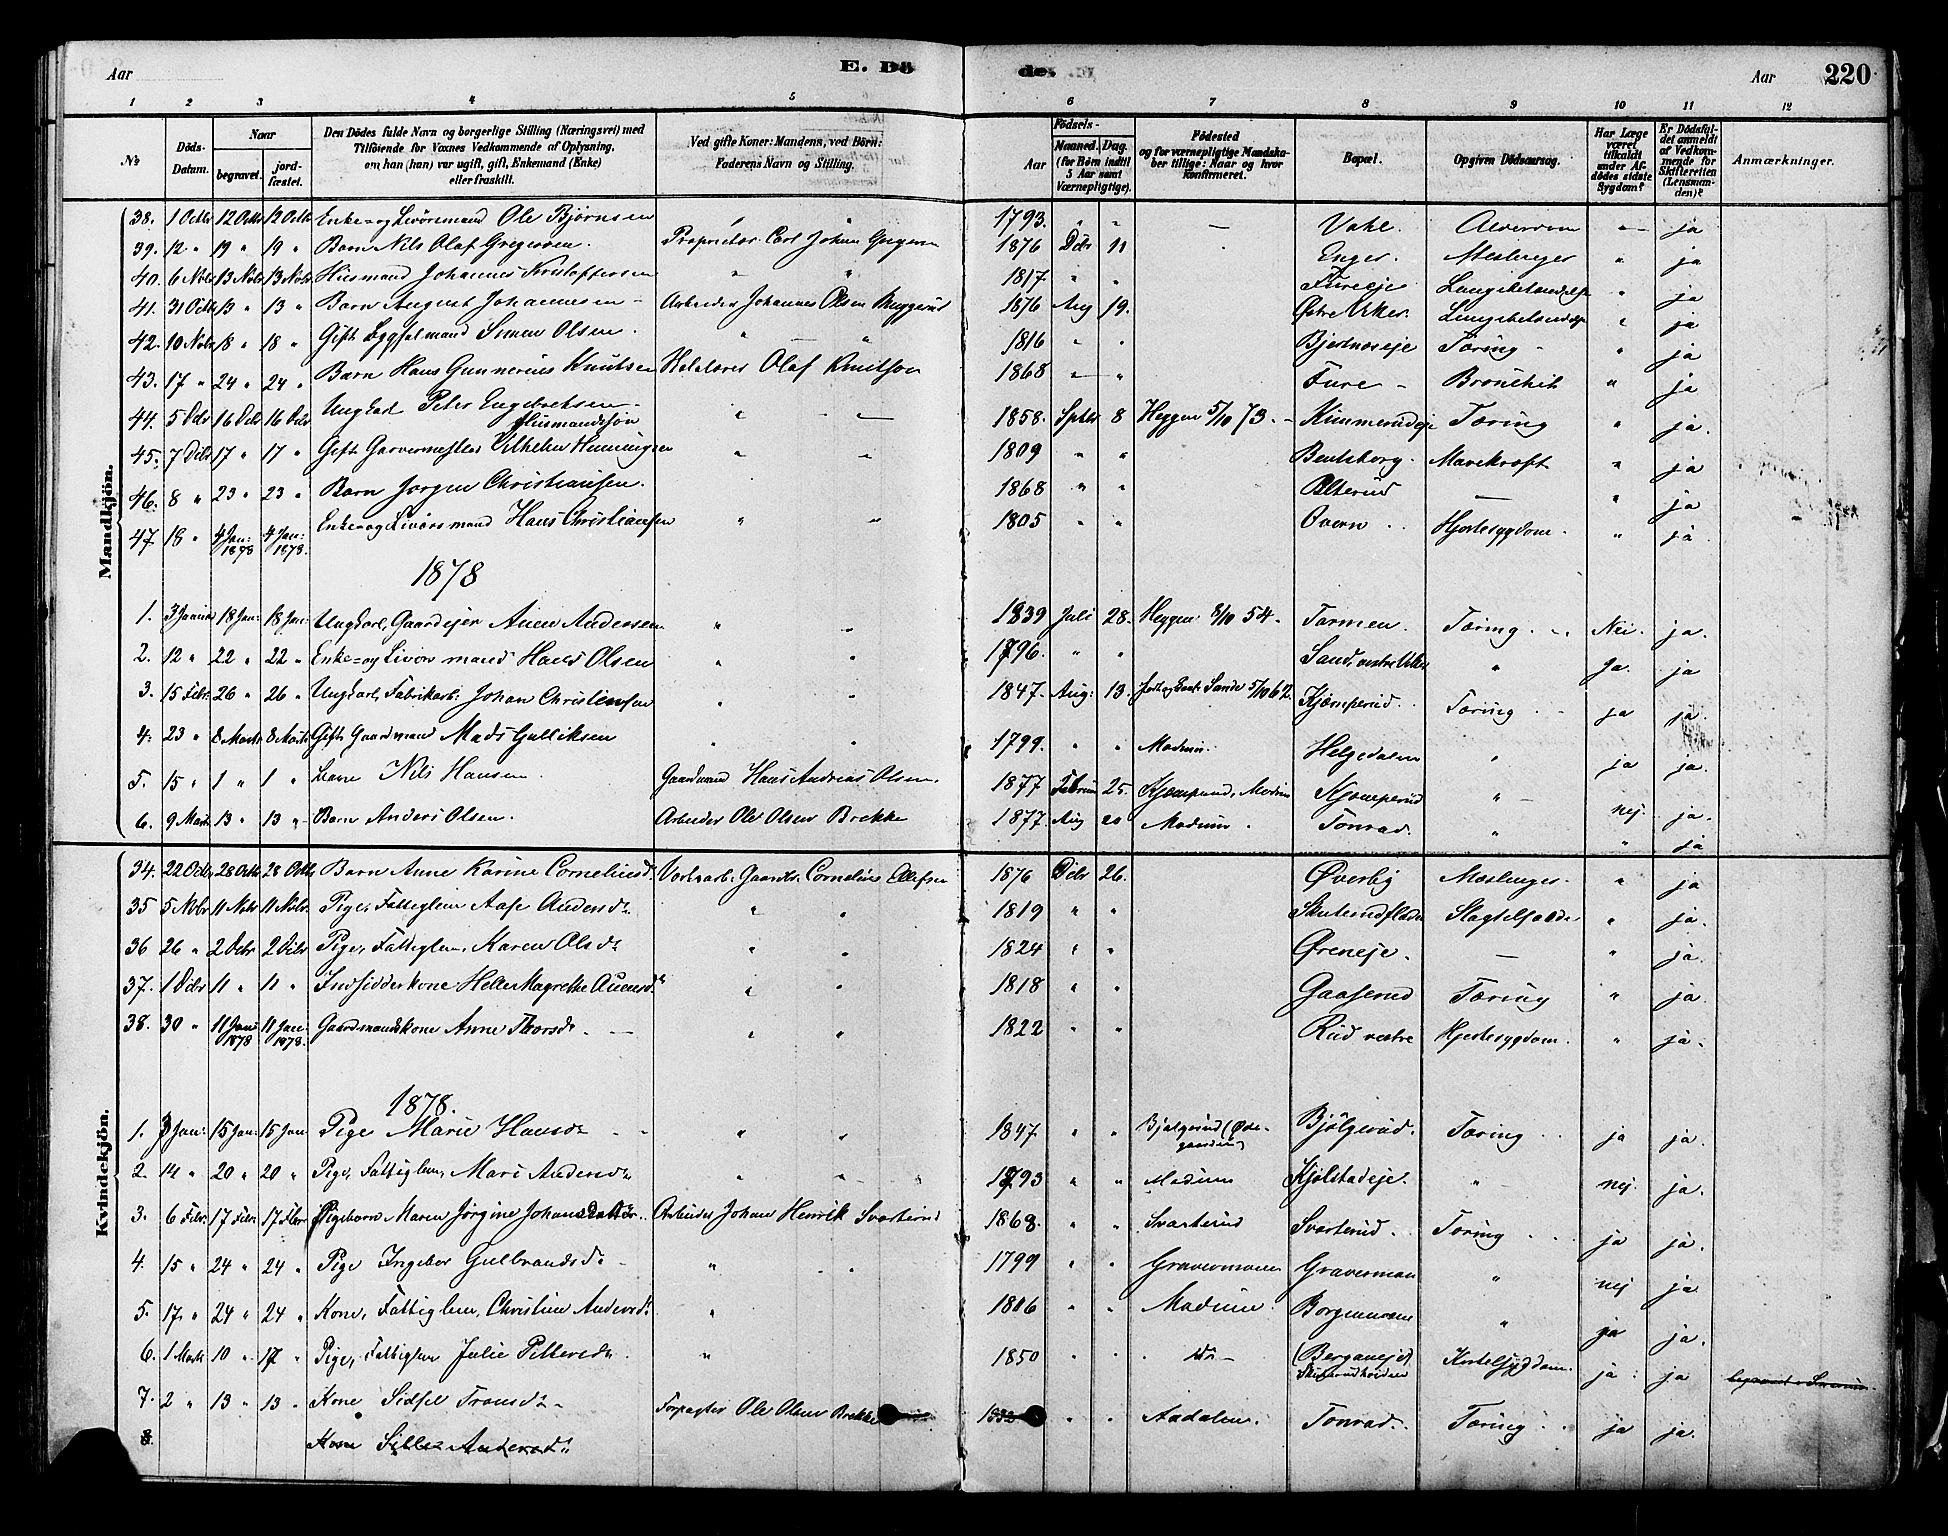 Aar E. Dö de. Aar 220
1 2 3 4 5 6 7 8 9 10 11 12
No Döds-Datum. Naar begravet. jord-fæstet. Den Dödes fulde Navn og borgerlige Stilling (Næringsvei) med Tilföiende for Voxnes Vedkommende af Oplysning, om han (hun) var ugift, gift, Enkemand (Enke) eller fraskilt. Ved gifte Koner: Mandens, ved Börn: Faderens Navn og Stilling. Födsels- Aar Maaned. Dag. (for Børn indtil 5 Aar samt Værnepligtige). Födested og for værnepligtige Mandskaber tillige: Naar og hvor konfirmeret. Bopæl. Opgiven Dödsaarsag. Har Læge været tilkaldt under Afdödes sidste Sygdom? Er Dödsfaldet anmeldt af Vedkommende for Skifteretten (Lensmanden)? Anmærkninger.
Mandkjön.
38. 1 Octbr 12 Octb 12 Octb Enke- og Livörsmand Ole Björnsen " " 1793. " " — Vake. Alderdom " ja
39. 12 " 19 " 19 " Barn Nils Olaf Gregersen. Proprietær Carl Johan Gregersen 1876 Dcbr 11 Enger. Meslinger " ja
40. 6 Nobr 13 Nobr 13 Nobr Husmand Johannes Kristoffersen " " 1817. " " Fureeje " ja
41. 31 Octb 13 " 13 " Barn August Johannesen - Arbeider Johannes Olsen 1876 Aug 19. Østre Viker. " ja
42. 10 Nobr 18 " 18 " Gift Lægsmand Simen Olsen. " " 1816 " " Bjertneseje Tæring - " ja
43. 17 " 24 " 24 " Barn Hans Gunnerius Knutsen Olaf Knutson 1868 " " Fure - Bronchit " ja
44. 5 Dcbr 16 Dcbr 16 Dcbr Ungkarl Peter Engebretsen Husmandssön " — 1858. Sptbr 8 Heggen 5/10 73. - Kimmerudeje Tæring " ja.
45. 7 Dcbr 17 " 17 " Gift Garvermester Vilhelm Henningsen " " 1809 " " Bentsborg. Mavekræft " ja
46. 8 " 23 " 23 " Barn Jörgen Christiansen. 1868 " " Alterud — " ja
47. 18 " 4 Jan: 1878 4 Jan: 1878. Enke- og Livörsmand Hans Christiansen " " 1805 " " Overn . Hjertesygdom. " ja
1878
1. 3 Januar 18 Jan: 18 Jan: Ungkarl, Gaardejer Anen Andersen " " 1839 Juli 28. Heggen 8/10 54. Tormen. Tæring. Nei. ja.
2. 12 " 22 " 22 " Enke- og Livörsmand Hans Olsen " " 1796. " " Sand, vestre Viker " Ja. ja
3. 15 Febr. 26 " 26 " Ungkarl, Fabrikarb. Johan Christensen " " 1847. Aug: 13. Sande 5/10 62. Kjæmperud. Tæring. ja ja.
4. 23 " 8 Marts 8 Marts Gift Gaardmand Mads Gulliksen " " 1799. " " Modum. Helgedalen " ja ja.
5. 15 " 1 " 1 " Nils Hansen. Gaardmand Hans Andreas Olsen. 1877 Februar 25. Kjæmperud, Modum Kjæmperud " nej. ja.
6. 9 Marts 13 " 13 " Barn Anders Olsen. Arbeider Ole Olsen Brekke 1877. Aug 20 Modum. Tonrud. " " ja
Kvindekjön.
34. 22 Octbr 28 Octb 28 Octb Barn Anne Karine Corneliusd. Gaardbr. Cornelius Olefsen 1876 Dcbr 26. Øverby Meslinger. " ja
35 5 Nobr 11 Nobr 11 Nobr. Pige, Fattiglem Aase Andersdr " " 1819 " " Skuterudflaten " ja.
36 26 " 2 Dcbr 2 Dcbr Pige, Fattiglem, Karen Olsdr " " 1824 " " Øreneje. — " ja.
37. 1 Dcbr 11 " 11 " Indsidderkone Helle Magrethe Auensdr " " 1818 " " Gaaserud Tæring " ja.
38. 30 " 11 Jan 1878 11 Jan 1878. Gaardmandskone Anne Thorsdr - " " 1822 " " Rud vestre Hjertesygdom. " ja.
1878.
1. 3 Jan: 15 Jan: 15 Jan Pige Marie Hansdr " " 1847 " " Bjølgerud (Ødegaarden) Bjølgerud. Tæring. ja ja.
2. 14 " 20 " 20 " Pige, Fattiglem, Mari Andersdr " " 1793 " " Modum Kjølstadeje. " nej. ja.
3. 6 Febr. 17 Febr. 17 Febr Pigebarn Maren Jörgine Johansdatter. Arbeider Johan Henrik Svarterud 1868. " " Svarterud Svarterud. Tæring ja ja.
4. 15 " 24 " 24 " Pige Ingebor Gulbrandsdr " " 1799 " " Gravermoen Gravermoen " nej ja
5. 17. " 24 " 24 " Kone, Fattiglem, Christine Andersdr " 1806 " " Modum. " ja ja.
6. 1 Marts 10 " 17 " Pige, Fattiglem Julie Pettersdr " 1850 . . do - (Berganeje) ja ja
7. 2 " 13 " 13 " Kone Sidsel Tronsdr - Forpagter Ole Olsen Brekke 1832 " " Aadalen. Tonrud. Tæring ja ja.
8. Kone Sidsel Andersdr